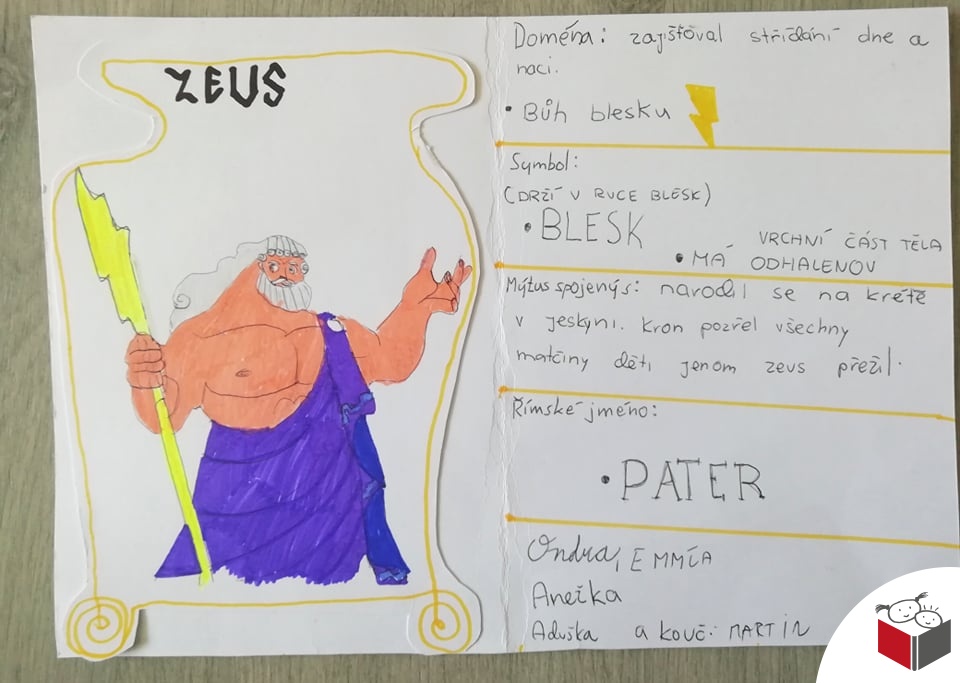 ZEUS
Doména: zajišťoval střídání dne a
noci.
• Bůh blesku
Symbol:
(DRŽÍ V RUCE BLESK)
• BLESK
• MÁ VRCHNÍ ČÁST TĚLA
ODHALENOV
Mýtus spojený s: narodil se na krétě
v jeskyni. Kron pozřel všechny
matčiny děti jenom zeus přežil.
Římské jméno:
• PATER
Ondra, EMMÍA
Anežka
Aduška a kouč: MARTIN